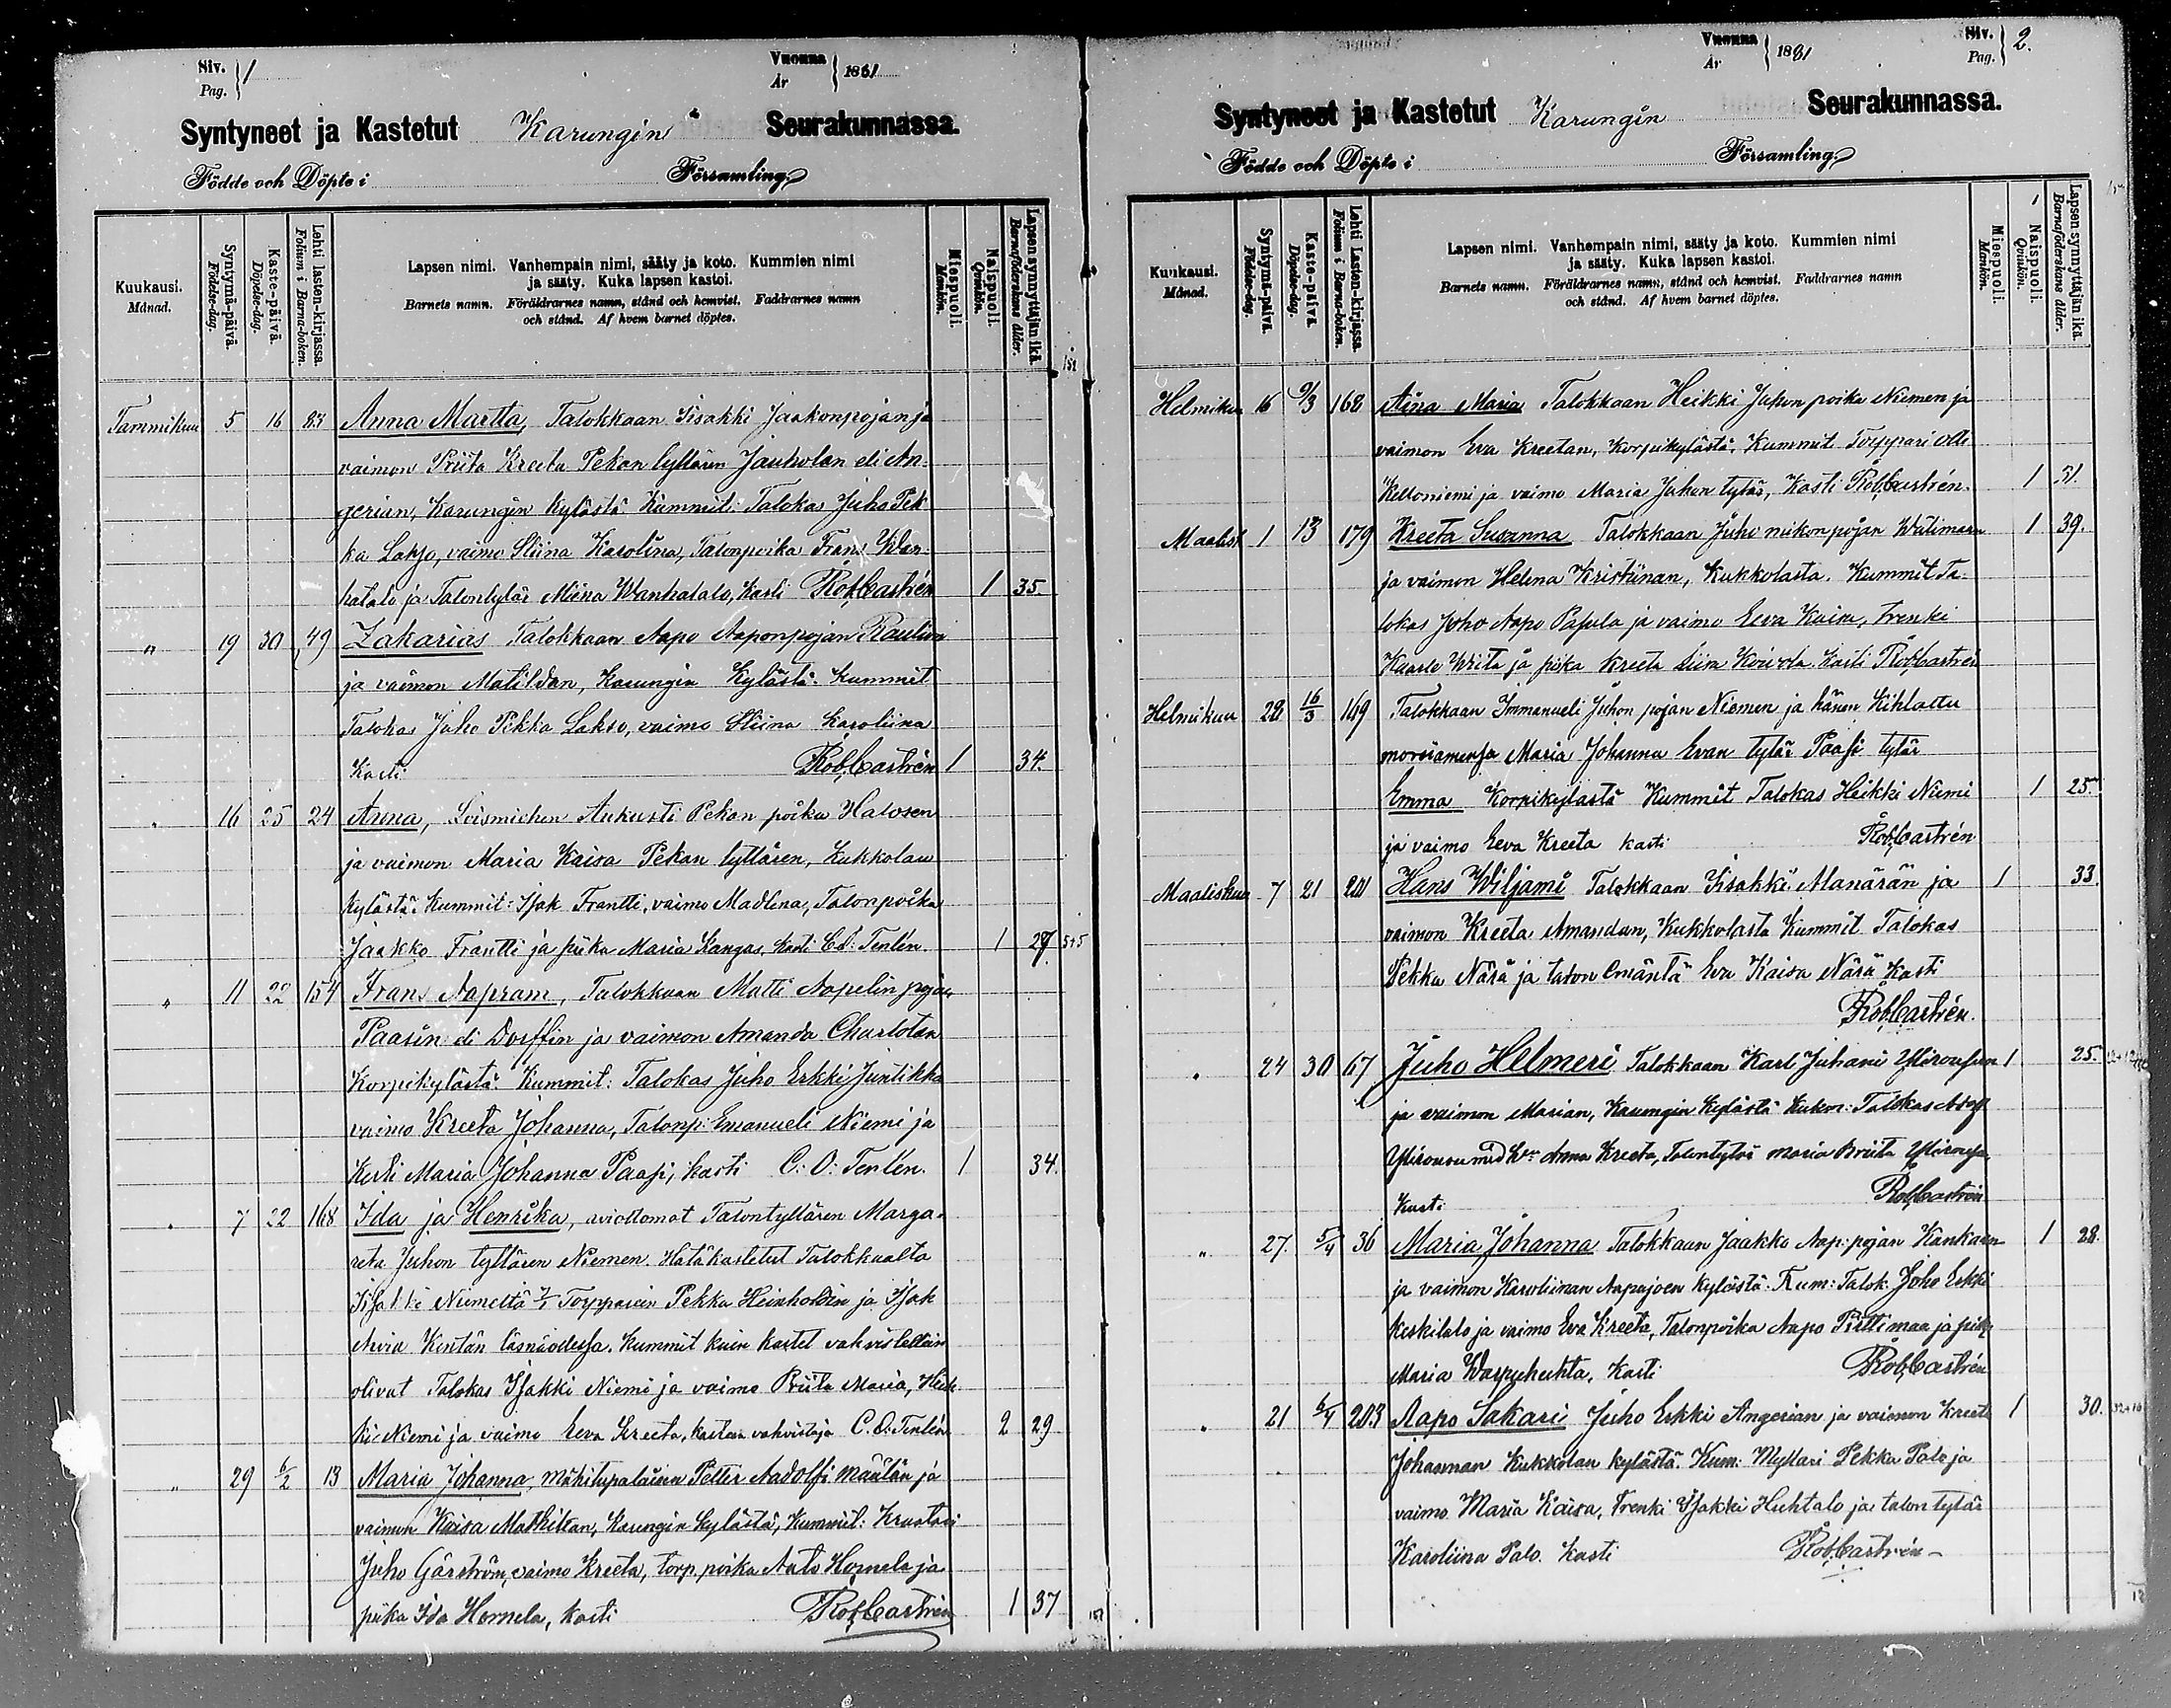 Siv. Pag. } 1
Vuonna År } 1881
Syntyneet ja Kastetut Karungin Seurakunnassa.
Födde och Döpte i Församling.
Kuukausi. Månad.
Syntymä-päivä. Födelse-dag.
Kaste-päivä. Döpelse-dag.
Lehti lasten-kirjassa. Folium i Barna-boken.
Lapsen nimi. Vanhempain nimi, sääty ja koto. Kummien nimi
ja sääty. Kuka lapsen kastoi.
Barnets namn. Föräldrarnes namn, stånd och hemvist. Faddrarnes namn
och stånd. Af hvem barnet döptes.
Miespuoli. Mankön.
Naispuoli. Qvinkön.
Lapsen synnyttäjän ikä. Barnaföderskans ålder.
Tammikuu 5 16 83 Anna Martta, Talokkaan Iisakki Jaakonpojan ja
vaimon Priita Kreeta Pekan tyttären Jauholan eli An-
gerian, Karungin kylästä Kummit: Talokas Juho Pek
ka Lakso, vaimo Stiina Karolina, Talonpoika Frans Wan-
hatalo ja Talontytär Miina Wanhatalo, Kasti Rob. Castrén 1 35.
" 19 30 49 Zakarias Talokkaan Aapo Aaponpojan Raution
ja vaimon Matildan, Karungin Kylästä. Kummit
Talokas Juho Pekka Lakso, vaimo Stiina Karoliina
Kasti Rob. Castrén 1 34.
" 16 25 24 Anna, Loismiehen Aukusti Pekan poika Halosen
ja vaimon Maria Kaisa Pekan tyttären, Kukkolan
kylästä. Kummit: Isak Frantti, vaimo Madlena, Talonpoika
Jaakko Frantti ja piika Maria Kangas, Kasti C. O. Tenlén. 1 27. 5+5
" 11 22 154 Frans Aapram, Talokkaan Matti Aapelin pojan
Paasin eli Dorffin ja vaimon Amanda Charlotan
Korpikylästä. Kummit: Talokas Juho Erkki Juntikka
vaimo Kreeta Johanna, Talonp: Emanueli Niemi ja
Maria Johanna Paasi, kasti C: O: Tenlén. 1 34.
" 7 22 168 Ida ja Henrika, aviottomat Talontyttären Marga-
reta Juhon tyttären Niemen. Hätäkastetut Talokkaalta
Niemeltä 7/1 Torpparein Pekka Heinholdin ja Isak
Kentän läsnäollessa. Kummit kuin kastet vahvistettiin
olivat Talokas Isakki Niemi ja vaimo Briita Maria, Heik
ki Niemi ja vaimo Eeva Kreeta, kasteen vahvistaja C. O. Tenlén 2 29
" 29 6/2 13 Maria Johanna, Mäkitupalaisen Petter Aadolfi Määtän ja
vaimon Kaisa Mathiltan, Karungin kylästä, Kummit:
Juho Gårström, vaimo Kreeta, torp. poika Aato Homela ja
piika Ida Homela, kasti Rob. Castrén 1 37
Vuonna År } 1881
Siv. Pag. } 2.
Syntyneet ja Kastetut Karungin Seurakunnassa.
Födde och Döpte i Församling.
Kuukausi. Månad.
Syntymä-päivä. Födelse-dag.
Kaste-päivä. Döpelse-dag.
Lehti Lasten-kirjassa. Folium i Barna-boken.
Lapsen nimi. Vanhempain nimi, sääty ja koto. Kummien nimi
ja sääty. Kuka lapsen kastoi.
Barnets namn. Föräldrarnes namn, stånd och hemvist. Faddrarnes namn
och stånd. Af hvem barnet döptes.
Miespuoli. Mankön.
Naispuoli. Qvinkön.
Lapsen synnyttäjän ikä. Barnaföderskans ålder.
Helmikuu 16 168 Aina Maria Talokkaan Heikki Juhon poika Niemen ja
vaimon Eva Kreetan, Korpikylästä. Kummit Torppari Olli
Kelloniemi ja vaimo Maria Juhon tytär, Kasti Rob. Castrén. 1 31.
Maalisk 1 13 179 Kreeta Susanna Talokkaan Juho Wiitimaan 1 39.
ja vaimon Helena Kristiinan, Kukkolasta. Kummit Ta-
lokas Joho Aapo Papula ja vaimo Eeva Kaisa, Frenki
Kaarle ja piika Kreeta Liisa Koivola. Kasti Rob. Castrén
Helmikuu 28 16/3 149 Talokkaan Immanueli Juhon pojan Niemen ja hänen Kihlattu
morsiamensa Maria Johanna Evan tytär Paasi tytär
Emma Korpikylästä Kummit Talokas Heikki Niemi 1 25.
ja vaimo Eeva Kreeta kasti Rob. Castrén
Maaliskuu 7 21 201 Hans Wiljami Talokkaan Iisakki Manärän ja 1 33.
vaimon Kreeta Amandan, Kukkolasta Kummit Talokas
Pekka Närä ja talon Emäntä Eva Kaisa Närä Kasti
Rob. Castrén.
" 24 30 67 Juho Helmeri Talokkaan Karl Juhani Ylirousun 1 25.
ja vaimon Marian, Karungin Kylästä Kumm: Talokas Adolf
Ylirousu med Anna Kreeta, Talontytär Maria Briita Ylirousu,
Kasti Rob. Castrén
" 27. 5/4 36 Maria Johanna Talokkaan Jaakko Aap: pojan Kankaan 1 28.
ja vaimon Karoliinan Aapajoen kylästä. Kum: Talok. Joho Erkki
Keskitalo ja vaimo Eva Kreeta, Talonpoika Aapo Pirttimaa ja piika
Maria Kasti Rob. Castrén
" 21 6/4 203 Aapo Sakari Juho Erkki Angerian ja vaimon Kreeta 1 30.
Johannan Kukkolan kylästä. Kum: Myllari Pekka Palo ja
vaimo Maria Kaisa, Frenki Isakki Huhtalo ja talon tytär
Karoliina Palo. Kasti Rob. Castrén